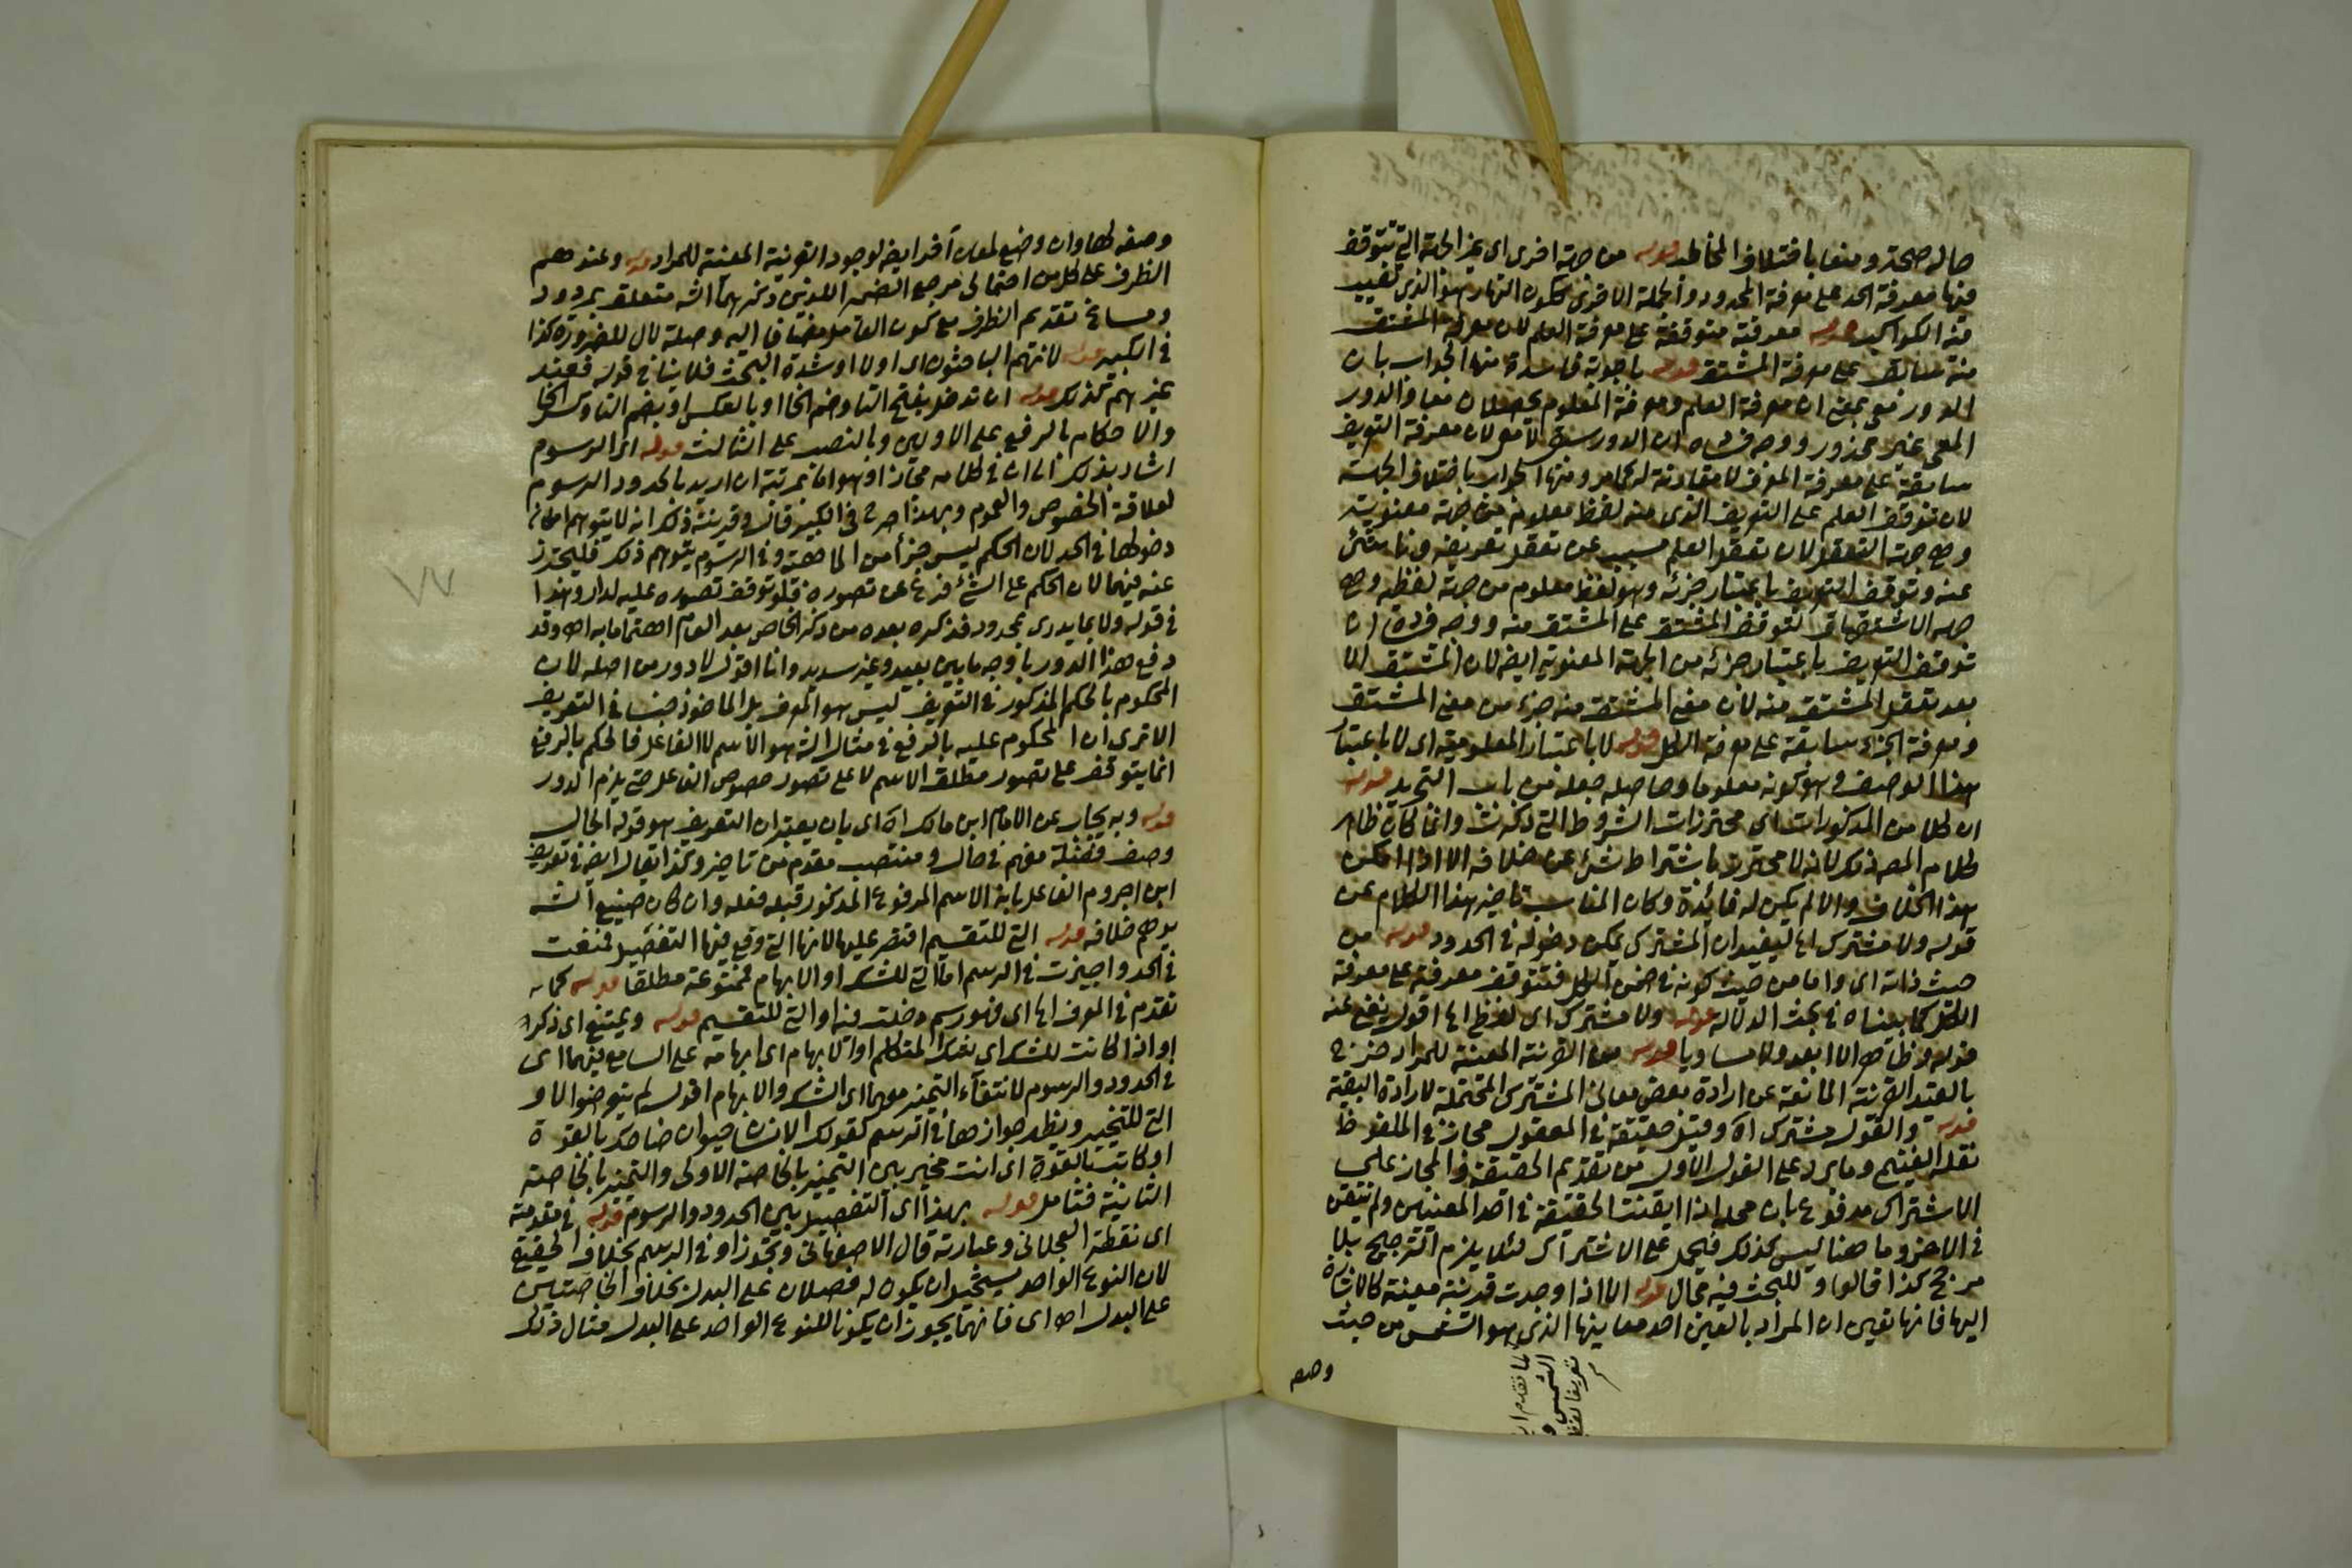 حاله صحة ومنعا باختلاف المخاطب قوله من جهة اخرى اى غير الجهة التى تتوقف
فيها معرفة الحد على معرفة المحدود والجملة الاخرى ككون النهار هو الذى تغيب
فيه الكواكب قوله معرفته متوقفة على معرفة العلم لان معرفة المشتق
منه سابقة على معرفة المشتق قوله باجوبة فاسدة منها الجواب بان
الدور معى بمعنى ان معرفة العلم ومعرفة المعلوم يحصلان معا والدور
المعى غير محذور ووجه فساده ان الدور سبقى لا معى لان معرفة التعريف
سابقة على معرفة المعرف لا مقارنة له كما مر ومنها الجواب باختلاف الجهة
لان توقف العلم على التعريف الذى منه لفظ معلوم من جهة معنويته
وهى جهة التعقل لان تعقل العلم مسبب عن تعقل تعريفه وناشئ
عنه وتوقف التعريف باعتبار جزئه وهو لفظ معلوم من جهة لفظه وهى
جهة الاشتقاق لتوقف المشتق على المشتق منه ووجه فساده ان
توقف التعريف باعتبار جزئه من الجهة المعنوية ايضا لان المشتق الا
بعد تعقل المشتق منه لان معنى المشتق منه جزء من معنى المشتق
ومعرفة الجزء سابقة على معرفة الكل قوله لا باعتبار المعلومية اى لا باعتبار
هذا الوصف وهو كونه معلوما وحاصله جعله من باب التجريد قوله
ان كلا من المذكورات اى محترزات الشروط التى ذكرت وانما كان ظاهر
كلام المص ذلك لانه لا يحترز باشتراط شئ عن خلافه الا اذا امكن
هذا الخلاف والا لم يكن له فائدة وكان المناسب تاخير هذا الكلام عن
قوله ولا مشترك الخ ليفيد ان المشترك يمكن دخوله فى الحدود قوله من
حيث ذاته اى واما من حيث كونه فى ضمن الكل فتتوقف معرفته على معرفة
الكل كما بيناه فى بحث الدلالة قوله ولا مشترك اى لفظ الخ اقول يغنى عنه
قوله وظاهرا لا ابعد ولا مساويا قوله من القرينة المعينة للمراد خرج
بالقيد القرينة المانعة عن ارادة بعض معانى المشترك المحتملة لارادة البقية
قوله والقول مشترك اه وقيل حقيقة فى المعقول مجاز فى الملفوظ
نقله الغنيمى وما يرد على القول الاول من تقديم الحقيقة والمجاز على
الاشتراك مدفوع بان محله اذا ايقنت الحقيقة فى احد المعنيين ولم تتيقن
فى الاخر وما هنا ليس كذلك فيحمل على الاشتراك لئلا يلزم الترجيح بلا
مرجح كذا قالوا وللبحث فيه مجال قوله الا اذا وجدت قرينة معينة كالاشارة
اليها فانها تعين ان المراد بالعين احد معانيها الذى هو الشمس من حيث
وصفه
لما تقدم ان
الشمس و
تعريفا لفظيا
وصفه لها وان وضع لمعان آخر ايضا لوجود القرينة المعينة للمراد قوله وعندهم
الظرف على كل من احتمالى مرجع الضمير اللذين ذكرهما الش متعلق بمردود
وساغ تقديم الظرف مع كون العامل مضافا اليه وصلة لال للضرورة كذا
فى الكبير قوله لانهم الباحثون اى اولا او شدة البحث فلا ينافى قوله فعند
غيرهم كذلك قوله ان تدخل بفتح التا وضم الخا او بالعكس او بضم التا وكسر الخا
والاحكام بالرفع على الاولين وبالنصب على الثالث قوله اى الرسوم
اشار بذلك الى ان فى كلامه مجازا وهو اما بمرتبة ان اريد بالحدود الرسوم
لعلاقة الخصوص والعموم وبهذا صرح فى الكبير قال وقرينته ذكر انه لا يتوهم امكان
دخولها فى الحد لان الحكم ليس جزأ من الماهية وفى الرسوم يتوهم ذلك فليحترز
عنه فيهما لان الحكم على الشئ فرع عن تصوره فلو توقف تصوره عليه لدار وهذا
فى قوله ولا بما يدرى بمحدود فذكره بعده من ذكر الخاص بعد العام اهتماما به اه وقد
دفع هذا الدور باوجه ما بين بعيد وغير سديد وانا اقول لا دور من اصله لان
المحكوم بالحكم المذكور فى التعريف ليس هو المعرف بل الماخوذ جنسا فى التعريف
الا ترى ان المحكوم عليه بالرفع فى مثال الش هو الاسم لا الفاعل فالحكم بالرفع
انما يتوقف على تصور مطلق الاسم لا على تصور خصوص الفاعل حتى يلزم الدور
قوله وبه يجاب عن الامام ابن مالك اه اى بان يعتبر ان التعريف هو قوله الحال
وصف فضلة مفهم فى حال ومنتصب مقدم من تاخير وكذا يقال ايضا فى تعريف
ابن اجروم الفاعل بانه الاسم المرفوع المذكور قبله فعله وان كان صنيع الش
يوهم خلافه قوله التى للتقسيم اقتصر عليها لانها التى وقع فيها التفصيل فمنعت
فى الحد واجيزت فى الرسم اما التى للشك او الابهام فممتوعة مطلقا قوله كما
تقدم فى المعرف الخ اى فهو رسم دخلت فيه او التى للتقسيم قوله ويمتنع اى ذكر
او اذا كانت للشك اى لشك المتكلم او الابهام اى ابهامه على السامع فيهما اى
فى الحدود والرسوم لانتفاء التمييز معهما اى الشك والابهام اقول لم يتعرضوا لاو
التى للتخيير ويظهر جوازها فى الرسم كقولك الانسان حيوان ضاحك بالقوة
او كاتب بالقوة اى انت مخير بين التمييز بالخاصة الاولى والتمييز بالخاصة
الثانية فتامل قوله بهذا اى التفصيل بين الحدود والرسوم قوله فى مقدمته
اى نقطة العجلانى وعبارته قال الاصفهانى وتجوز او فى الرسم بخلاف الحقيقى
لان النوع الواحد يستحيل ان يكون له فصلان على البدل بخلاف الخاصتين
على البدل اه اى فانهما يجوز ان يكونا للنوع الواحد على البدل مثال ذلك